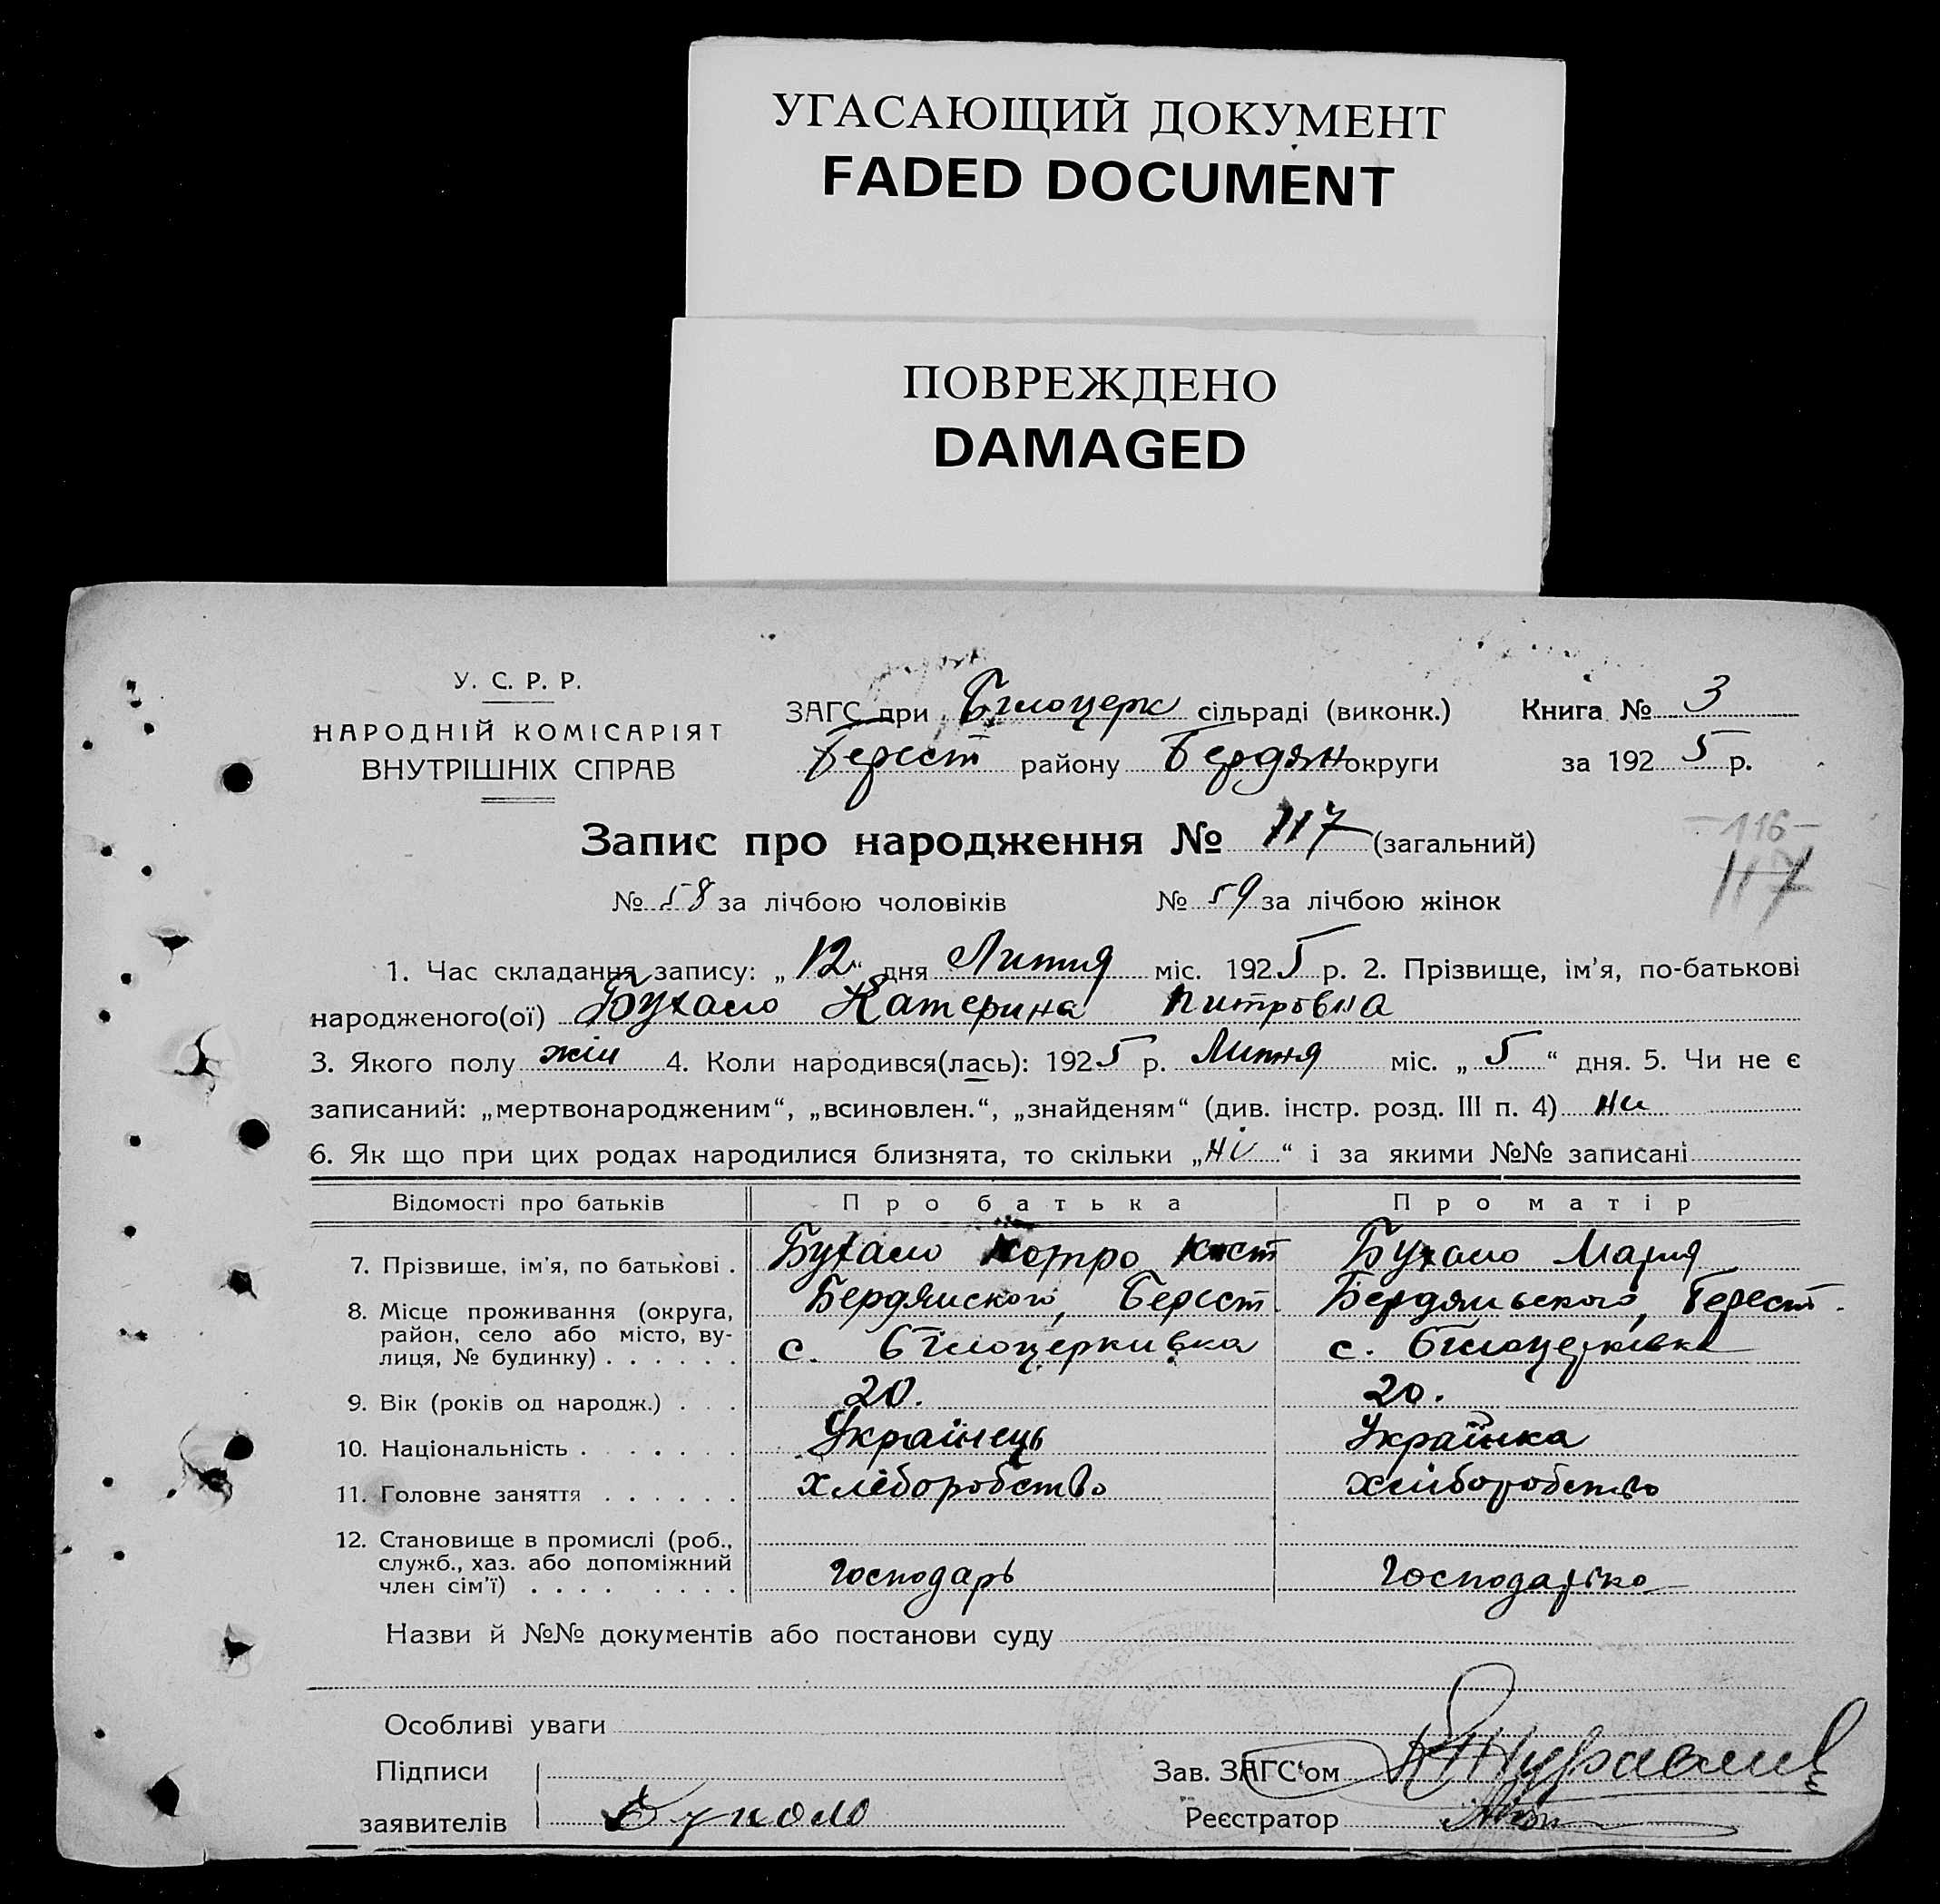 УГАСАЮЩИЙ ДОКУМЕНТ
FADED DOCUMENT
ПОВРЕЖДЕНО
DAMAGED
У. С. Р. Р.
НАРОДНІЙ КОМІСАРІЯТ
ВНУТРІШНІХ СПРАВ
ЗАГС при Білоцерк сільраді (виконк.) Книга № 3
Берест району Бердян округи за 1925 р.
Запис про народження № 117 (загальний)
116
117
№ 58 за лічбою чоловіків № 59 за лічбою жінок
1. Час складання запису: „12“ дня Литня міс. 1925 р. 2. Прізвище, ім'я, по-батькові
народженого(ої) Бухало Катерина питровна
3. Якого полу жін 4. Коли народився(лась): 1925 р. Литня міс. „5“ дня. 5. Чи не є
записаний: „мертвонародженим“, „всиновлен.“, „знайденям“ (див. інстр. розд. III п. 4) ни
6. Як що при цих родах народилися близнята, то скільки „ні“ і за якими №№ записані
Відомості про батьків Про батька Про матір
7. Прізвище, ім'я, по батькові . Бухало Кост Бухало Мария
8. Місце проживання (округа, Бердянского, Берест. Бердянського, Берест.
район, село або місто, ву-
лиця, № будинку) . . . . . . с. Білоцеркивка с. Білоцерківка
9. Вік (років од народж.) . . . 20. 20.
10. Національність . . . . . . . Українець Українка
11. Головне заняття . . . . . . хліборобство хліборобство
12. Становище в промислі (роб.,
служб., хаз. або допоміжний
член сім'ї) . . . . . . . . господарь господарка
Назви й №№ документів або постанови суду
Особливі уваги
Підписи Зав. ЗАГС'ом
заявителів Реєстратор